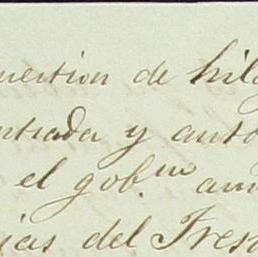 uestion de hila
ntrada y auto
el gob.no am
icas del Fres